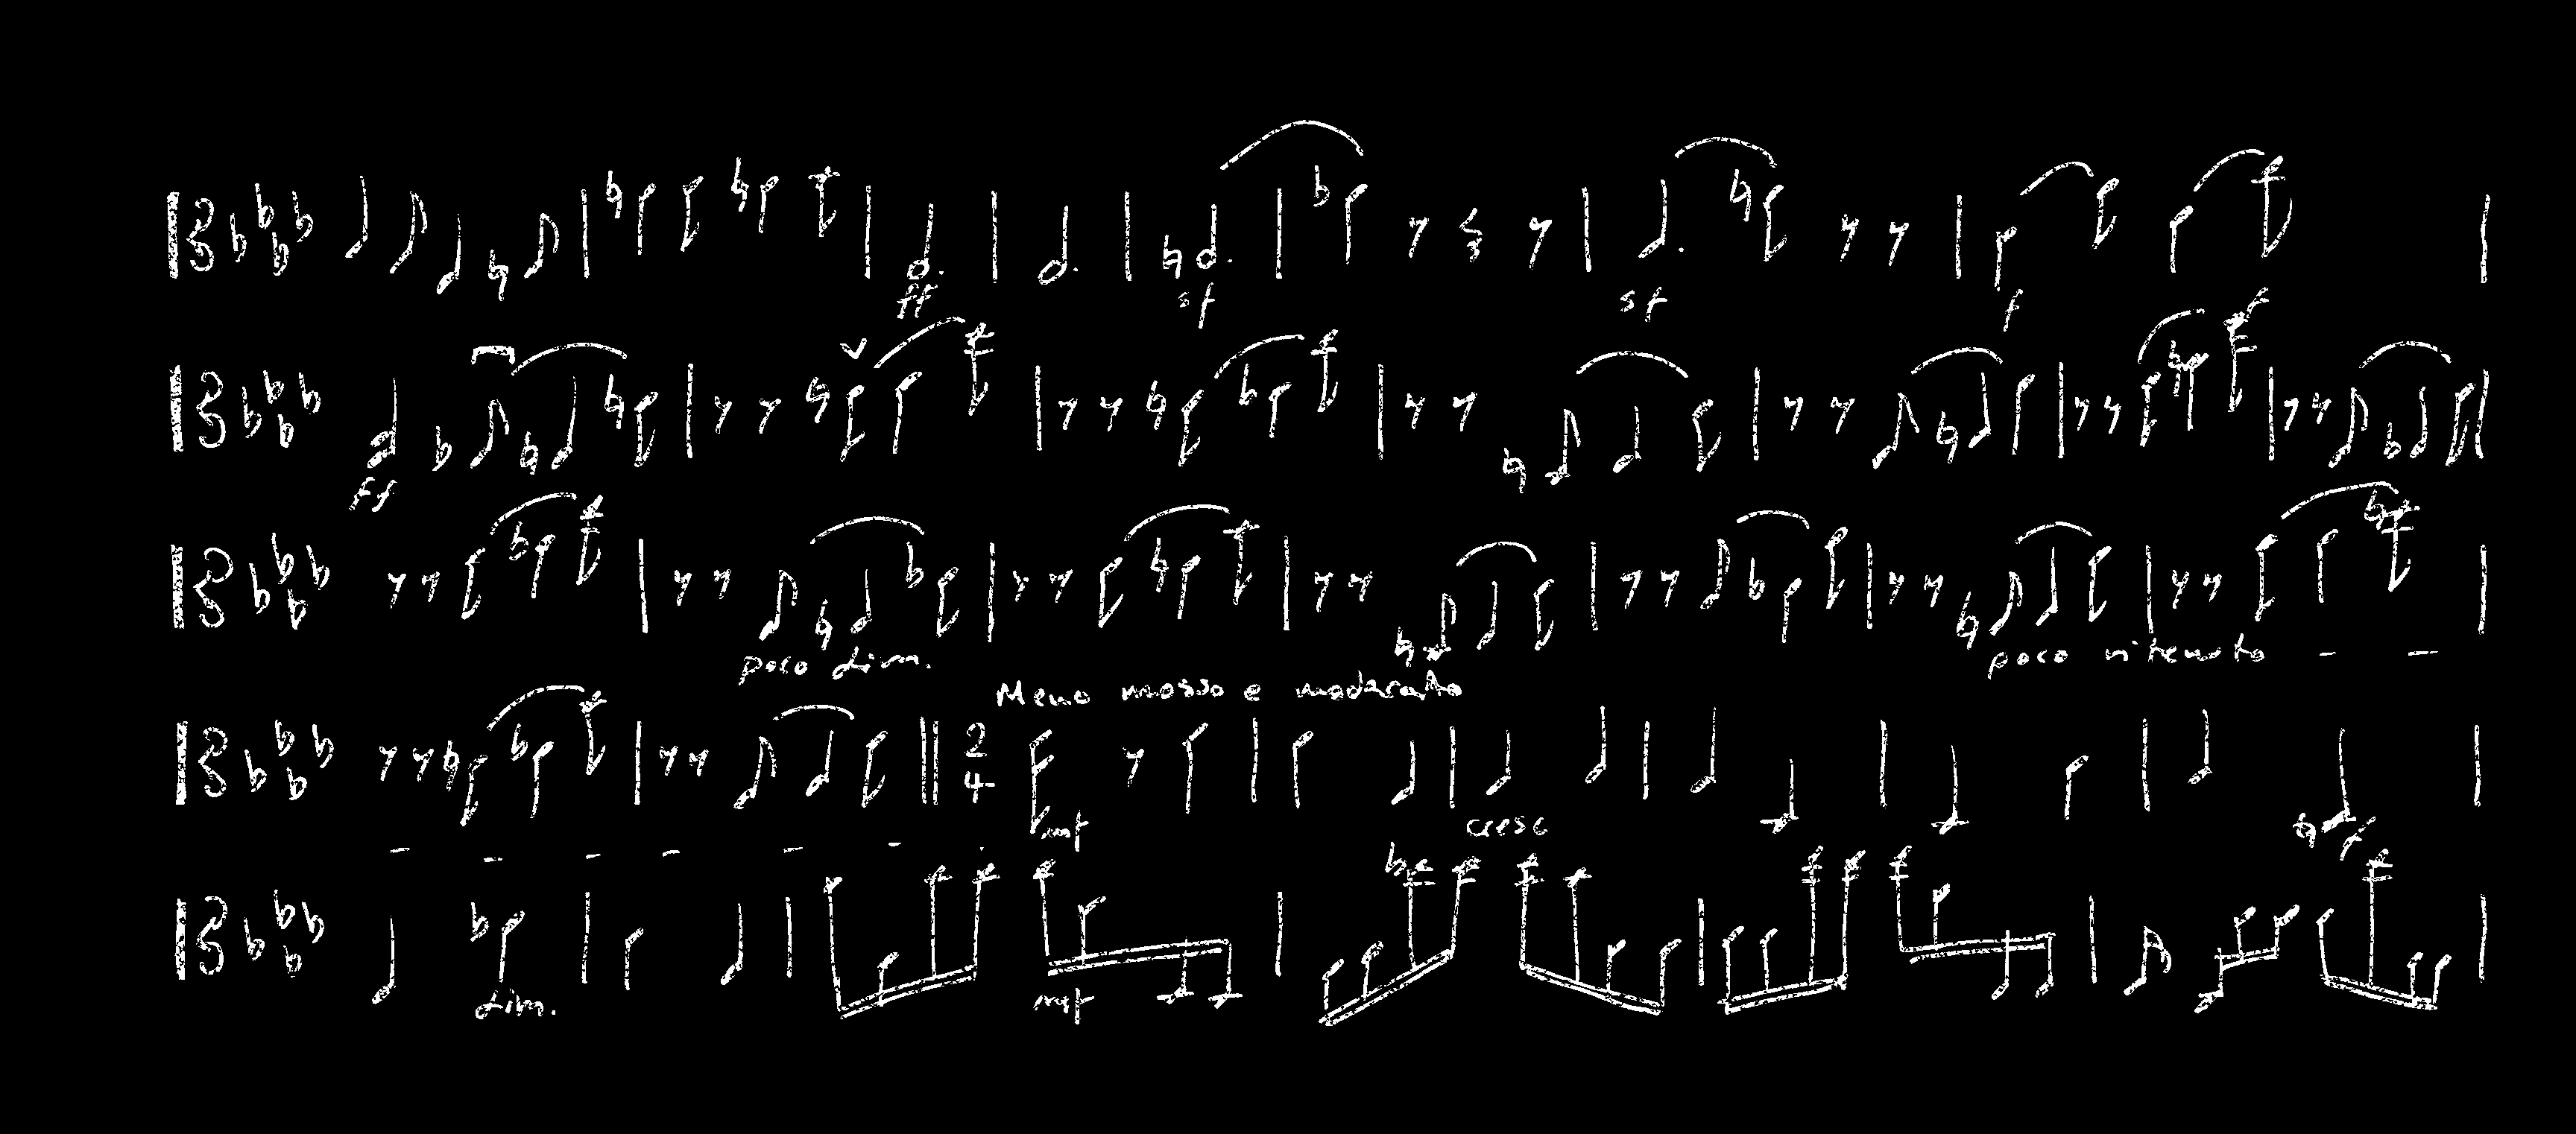 ff sf sf f
ff f
poco dim. poco ritenuto
Meno mosso e moderato
2
4
mf cresc f
dim. mf